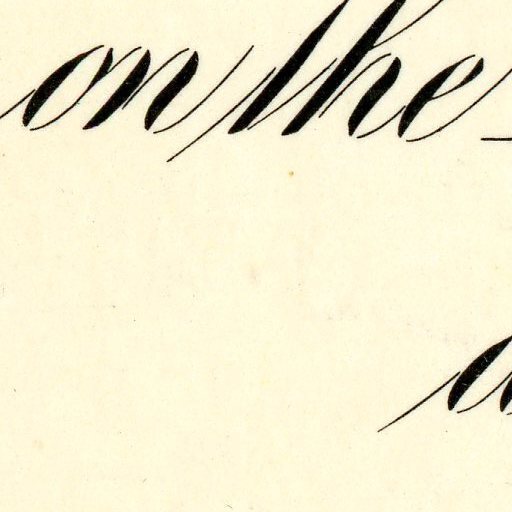 on the